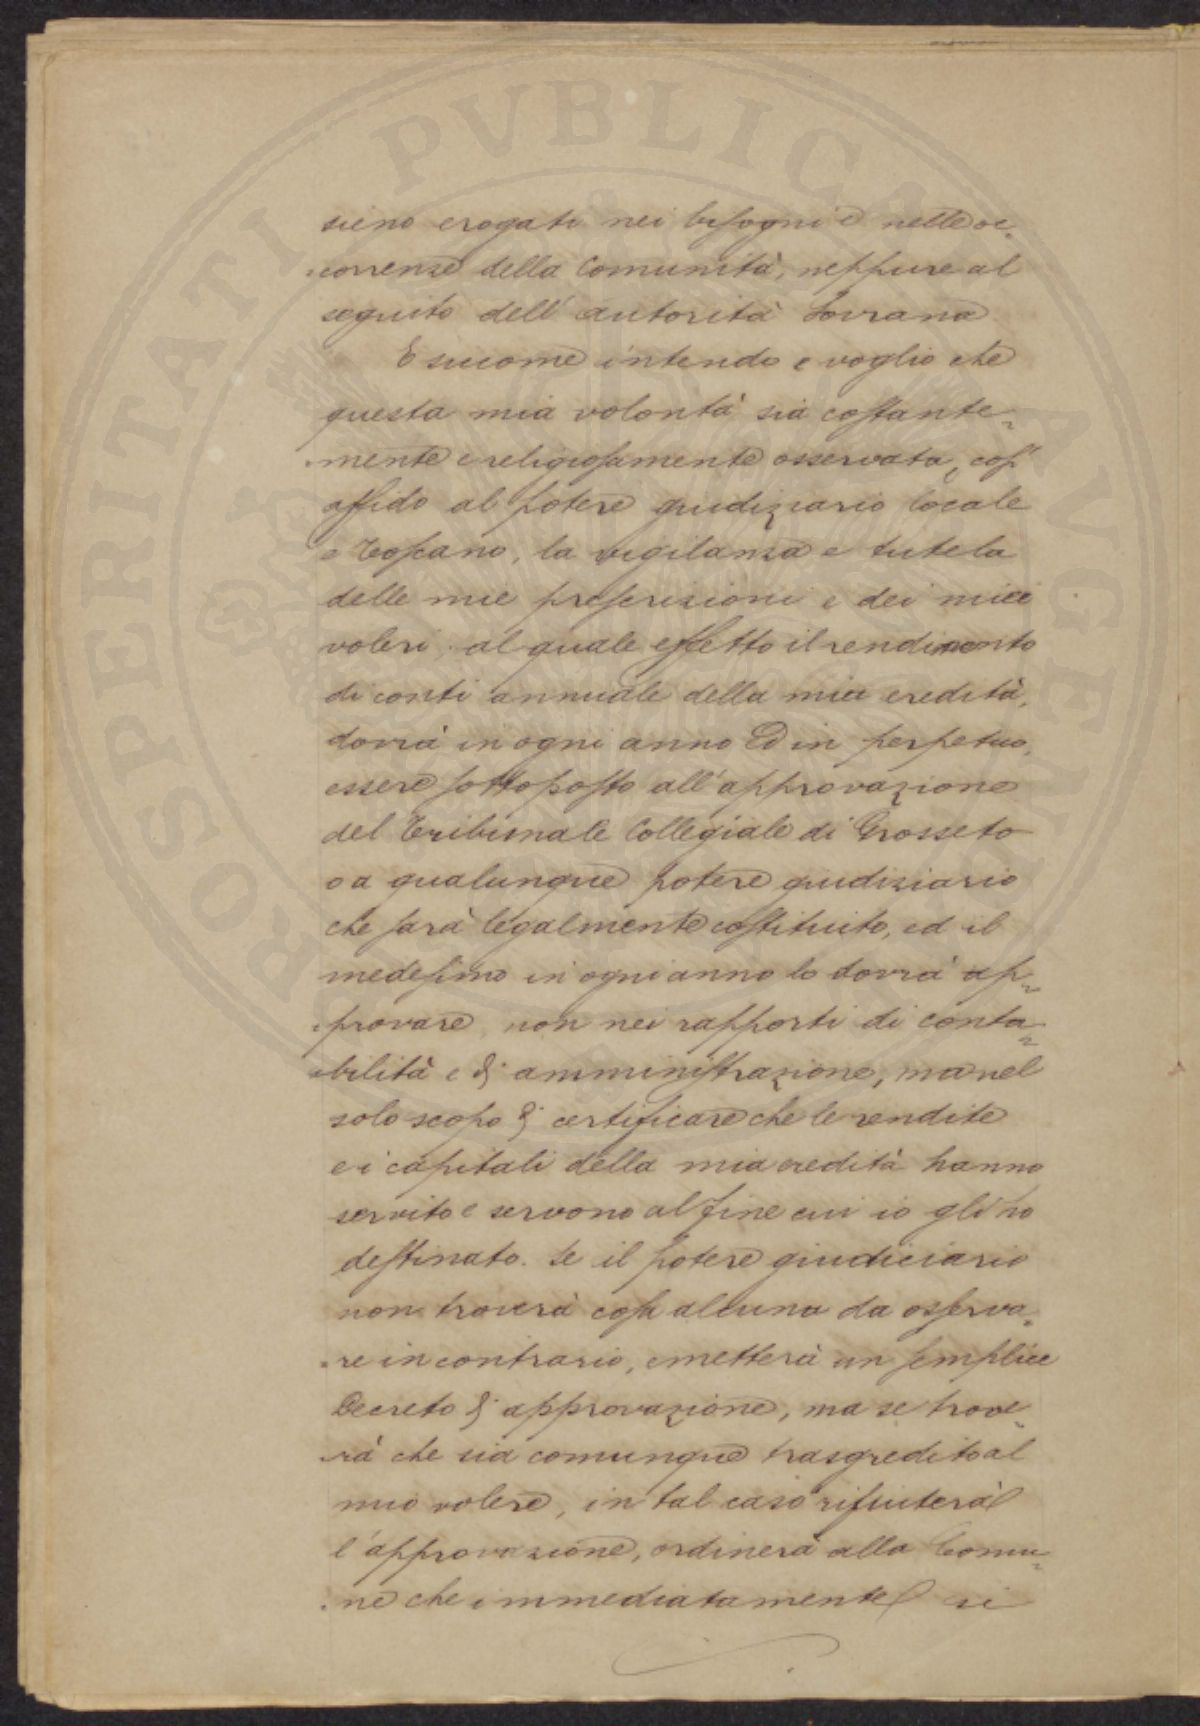 PROSPERITATI PVBLICAE AVGENDAE
sieno erogati nei bisogni e nelle oc=
=correnze della Comunità, neppure al
seguito dell' autorità Sovrana
E siccome intendo e voglio che
questa mia volontà sia costante=
=mente e religiosamente osservata, cosi
affido al potere giudiziario locale
e Toscano, la vigilanza e tutela
delle mie prescrizioni e dei miei
voleri, al quale effetto il rendimento
di conti annuale della mia eredità,
dovrà in ogni anno ed in perpetuo,
essere sottoposto all'approvazione
del Tribunale Collegiale di Grosseto
o a qualunque potere giudiziario
che sarà legalmente costituito, ed il
medesimo in ogni anno lo dovrà ap=
=provare, non nei rapporti di conta=
=bilità e di amministrazione, ma nel
solo scopo di certificare che le rendite
e i capitali della mia eredità hanno
servito e servono al fine cui io gli ho
destinato. Se il potere giudiciario
non troverà cosa alcuna da osserva=
=re in contrario, emetterà un semplice
Decreto di approvazione, ma se trove=
=rà che sia comunque trasgredito al
mio volere, in tal caso rifiuterà
l'approvazione, ordinerà alla Comu=
=ne che immediatamente si